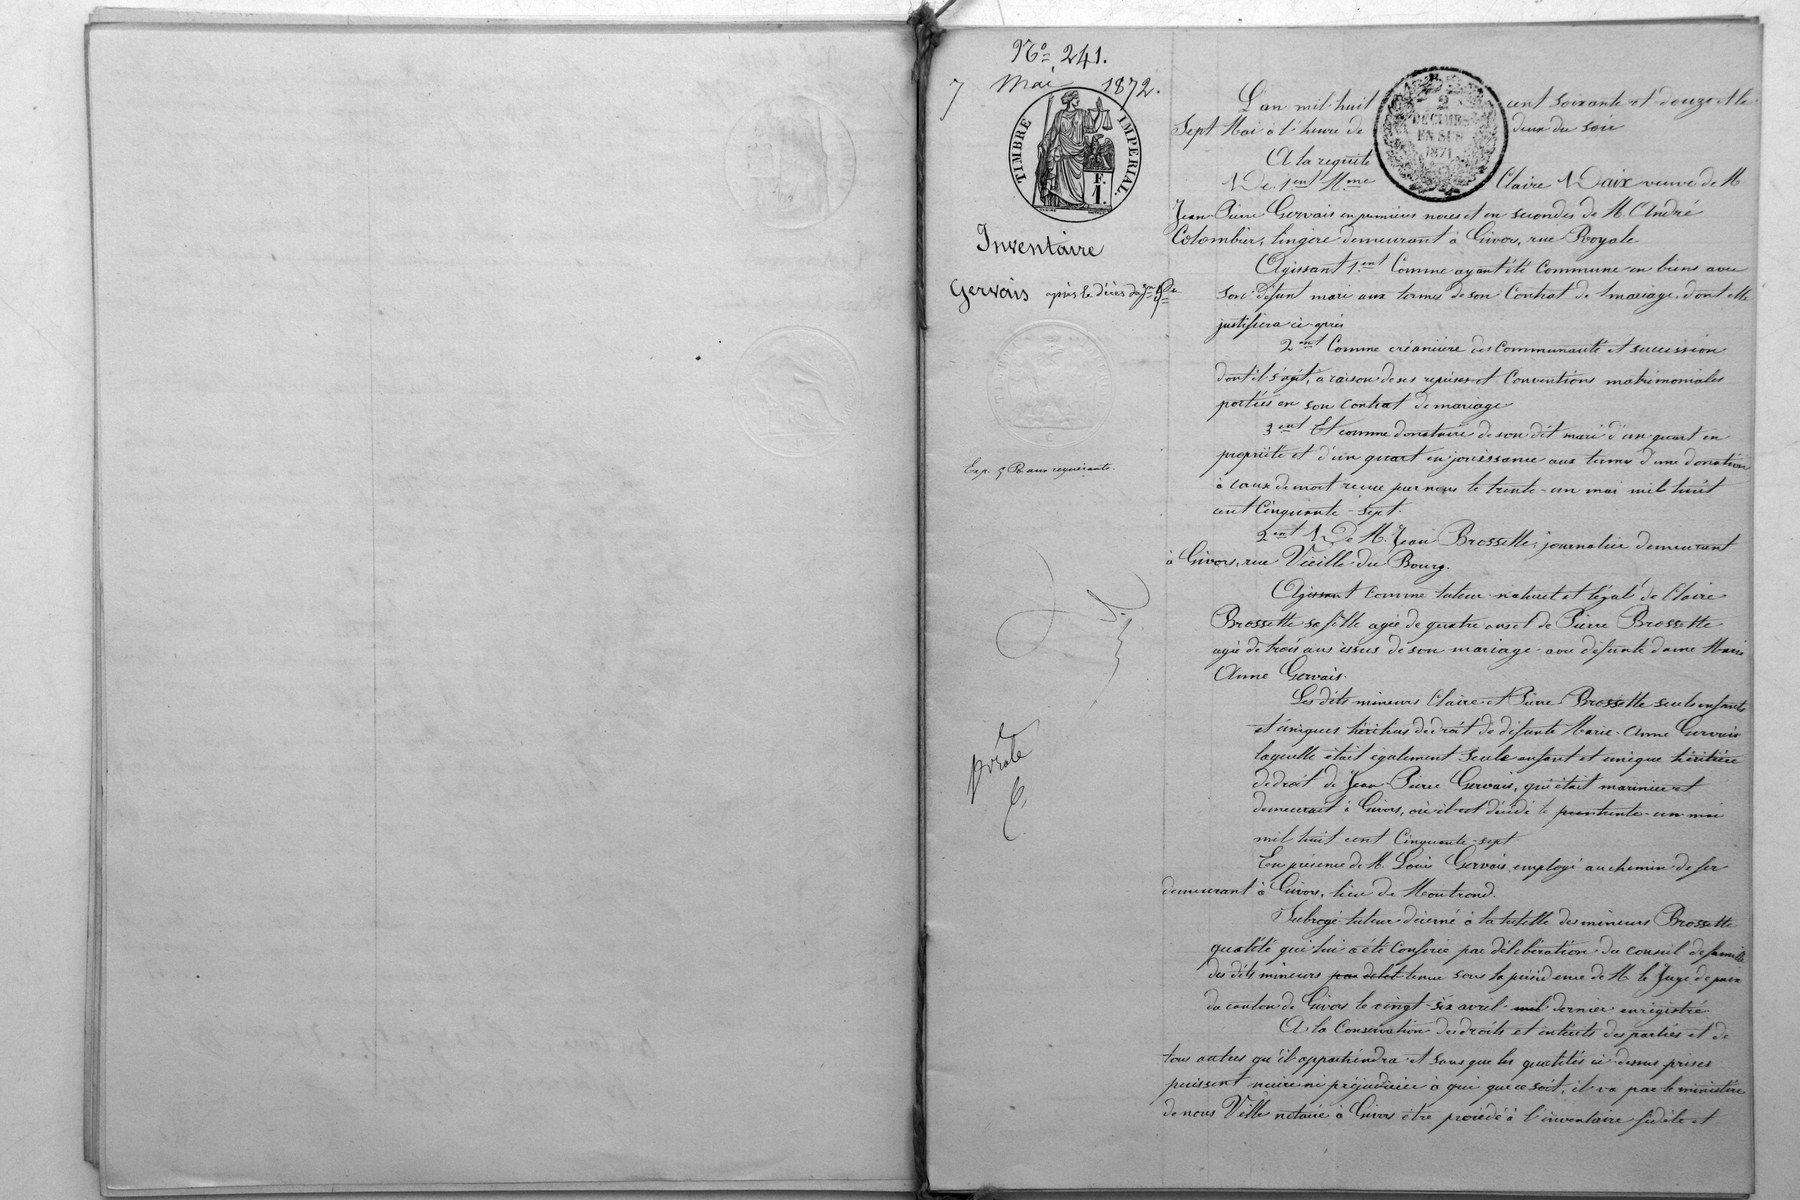 N° 241.
7 Mai 1872.
TIMBRE IMPERIAL.
F.
1.
2
DÉCIMES
EN SUS
1871
Inventaire
Gervais après le décès du Sr
Exp. 5 R aux requérants.
L'an mil huit cent soixante et douze et le
Sept Mai à l'heure de deux du soir
A la requête
De 1ent Mme Claire Daix veuve de M
Jean Pierre Gervais en premières noces et en secondes de M. André
Colombier, lingère demeurant à Givors, rue Royale
Agissant 1ent Comme ayant été Commune en biens avec
son défunt mari aux termes de son Contrat de mariage, dont elle
justifiera ci-après
2ent Comme créancière des Communauté et succession
dont il s'agit, a raison de ses reprises et Conventions matrimoniales
portées en son contrat de mariage
3ent Et comme donataire de son dit mari d'un quart en
propriété et d'un quart en jouissance aux termes d'une donation
à cause de mort reçue par nous le trente-un mai mil huit
cent Cinquante-sept.
2ent De M. Jean Brossette, journalier demeurant
à Givors, rue Vieille du Bourg.
Agissant Comme tuteur naturel et légal de Claire
Brossette sa fille agée de quatre ans et de Pierre Brossette
agé de trois ans issus de son mariage avec défunte dame Marie
Anne Gervais.
Les dits mineurs Claire et Pierre Brossette seuls enfants
et uniques héritiers de droit de défunte Marie-Anne Gervais
laquelle était également seule enfant et unique héritière
de droit de Jean Pierre Gervais, qui était marinier et
demeurait à Givors, où il est décédé le trente-un mai
mil huit cent Cinquante-sept
En présence de M. Louis Gervais employé au chemin de fer
demeurant à Givors, lieu de Montrond.
Subrogé-tuteur décerné à la tutelle des mineurs Brossette
qualité qui lui a été Conférée par délibération du conseil de famille
des dits mineurs par delib tenue sous la présidence de M. le Juge de paix
du canton de Givors le vingt-six avril mil dernier enregistré
A la Conservation des droits et intérêts des parties et de
tous autres qu'il appartiendra et sans que les qualités ci-dessus prises
puissent nuire ni préjudicier à qui que ce soit, il va par le ministère
de nous Ville notaire à Givors être procédé à l'inventaire fidèle et